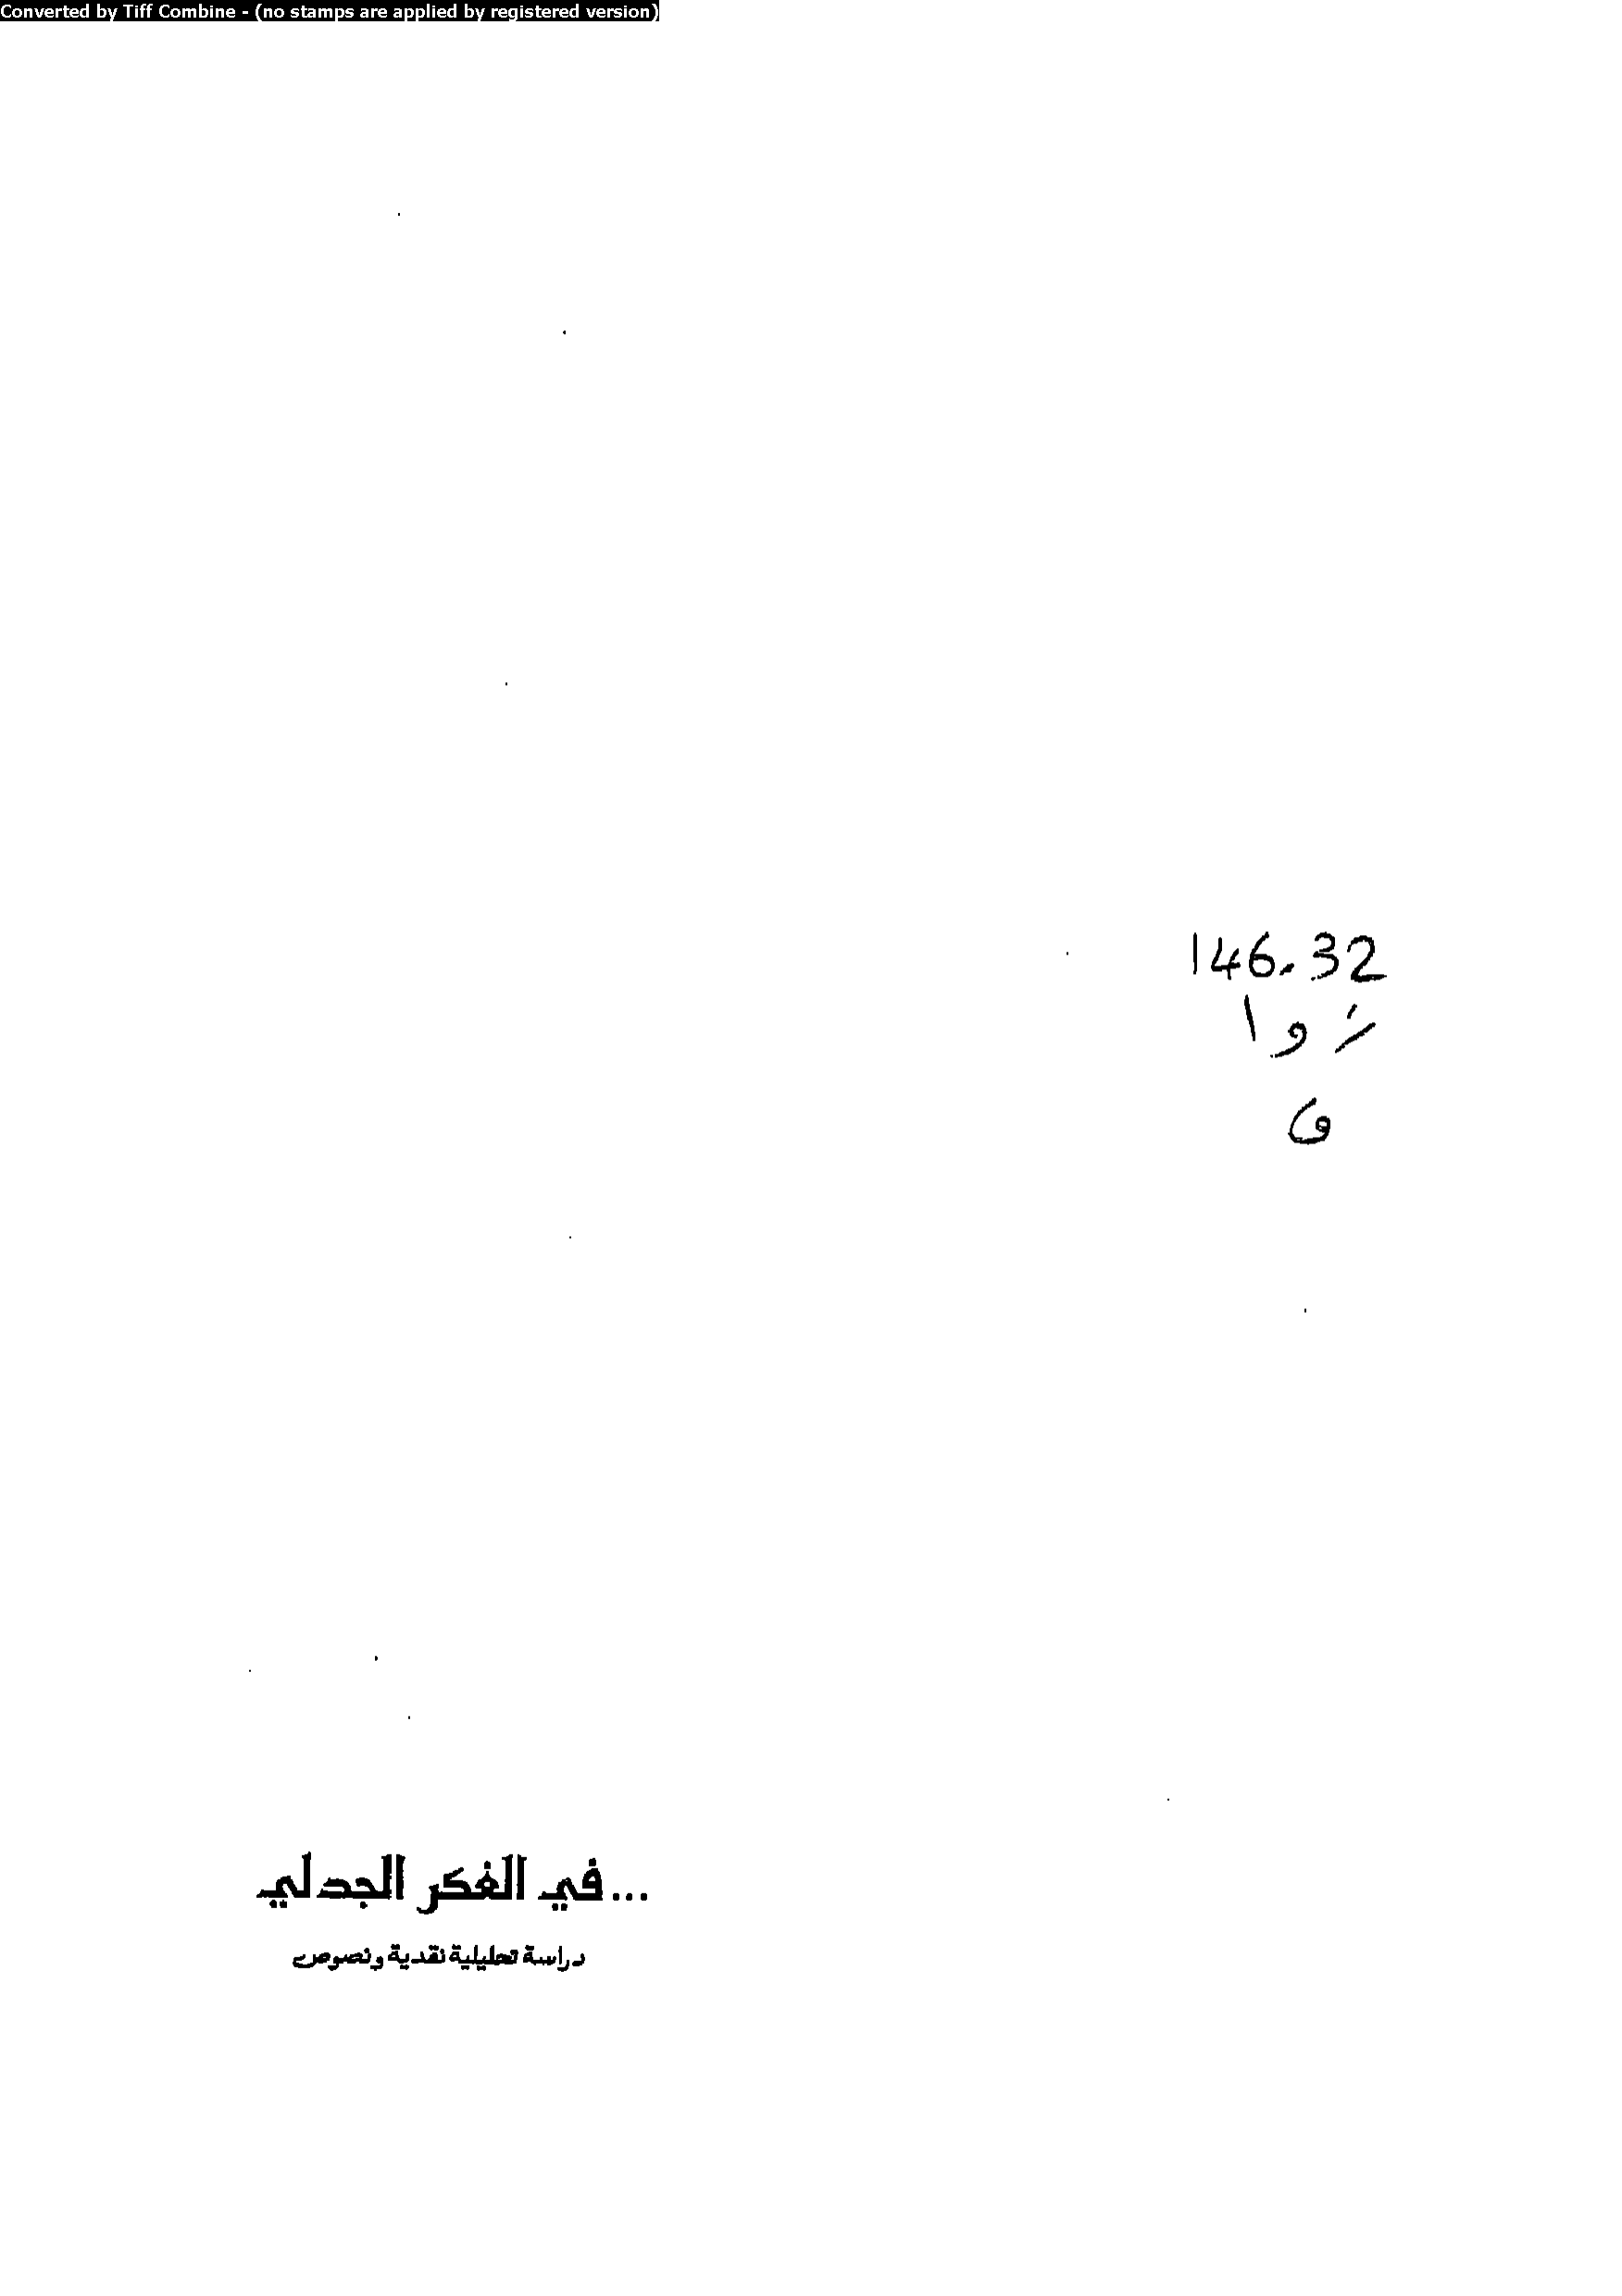 Converted by Tiff Combine - (no stamps are applied by registered version)
146.32
ز و ا
...في الفكر الجدلي
دراسة تحليلية نقدية ونصوص